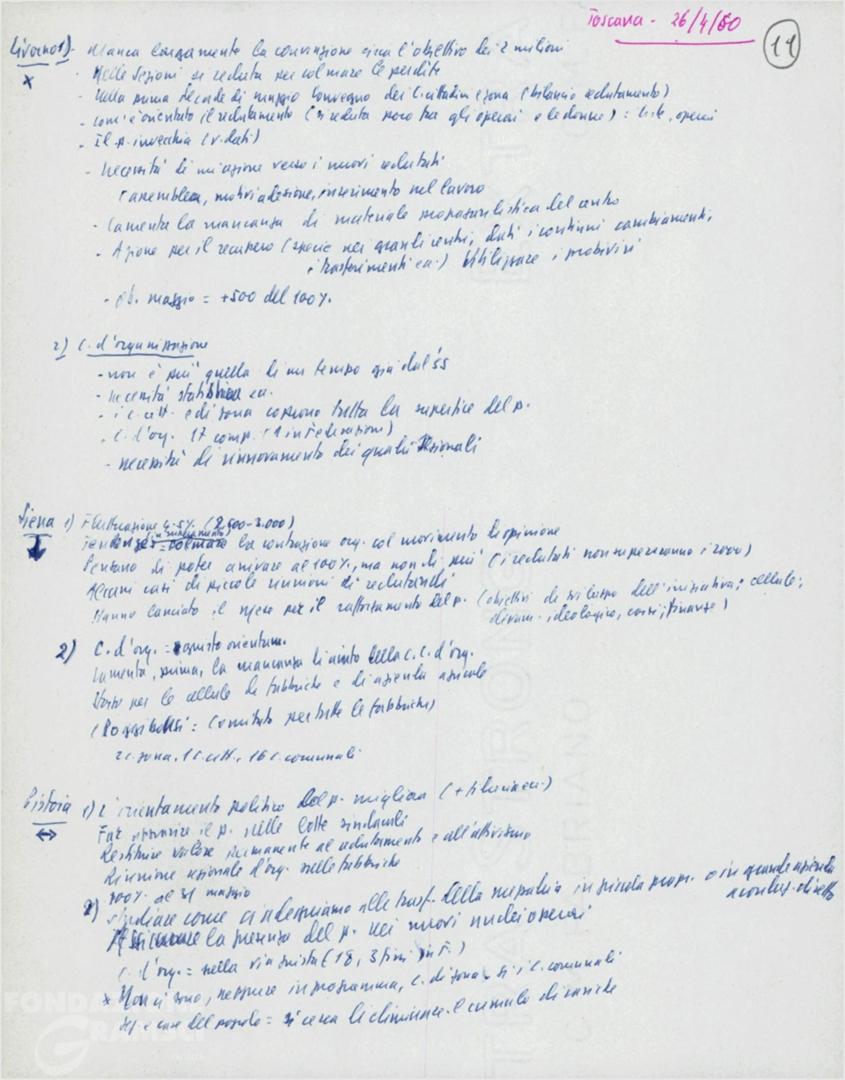 Toscana - 26/4/60
11
Livorno 1) - Manca largamente la convinzione circa l'obiettivo dei 2 milioni
x - Nelle sezioni si recluta per colmare le perdite
- Nella prima decade di maggio Convegno dei C. cittadini e zona (bilancio reclutamento)
- Com'è orientato il reclutamento (si recluta poco tra gli operai e le donne) = liste, operai
- Il p. invecchia (v. dati)
- Necessità di un'azione verso i nuovi reclutati
(assemblea, motivi adesione, inserimento nel lavoro
- Lamenta la mancanza di materiale propagandistico del centro
- Azione per il recupero (specie nei grandi centri, dati i continui cambiamenti,
i trasferimenti ecc.) Utilizzare i probiviri
- Ob. maggio = +500 del 100%.
2) C. d'organizzazione
- non è più quella di un tempo già dal '55
- necessità statistica ecc.
- i c. citt. e di zona coprono tutta la superficie del p.
- C. d'org. 17 comp. (1 in Federazione)
- necessità di rinnovamento dei quadri sezionali
Siena 1) Fluttuazione 4-5% (2.500-3.000)
la contrazione org. col movimento d'opinione
Pensano di poter arrivare al 100%, ma non di più (i reclutati non supereranno i 2000)
Alcuni casi di piccole riunioni di reclutandi
Hanno lanciato il mese per il rafforzamento del p. (obiettivi di sviluppo dell'iniziativa; cellule;
ideologico, corsi, finanze)
2) C. d'org. = giusto orientam.
Lamenta, prima, la mancanza di aiuto della C.C. d'org.
per le cellule di fabbriche e di azienda agricole
(Poggibonsi = Comitato per tutte le fabbriche)
2 c. zona, 1 c. citt., 16 c. comunali
Pistoia 1) L'orientamento politico del p. migliora (+ fiducia ecc.)
Far apparire il p. nelle lotte sindacali
Restituire valore permanente al reclutamento e all'attivismo
Riunione regionale d'org. sulle fabbriche
100% al 31 maggio
2) Studiare come ci adeguiamo alle trasf. della mezzadria in piccola propr. o in grande azienda
a conduz. diretta
Assicurare la presenza del p. nei nuovi nuclei operai
C. d'org. = nella via giusta (18, 3 fissi in F.)
x Non ci sono, neppure in programma, C. di zona, sì i c. comunali
e case del popolo = si cerca di eliminare il cumulo di cariche
FONDAZIONE
GRAMSCI